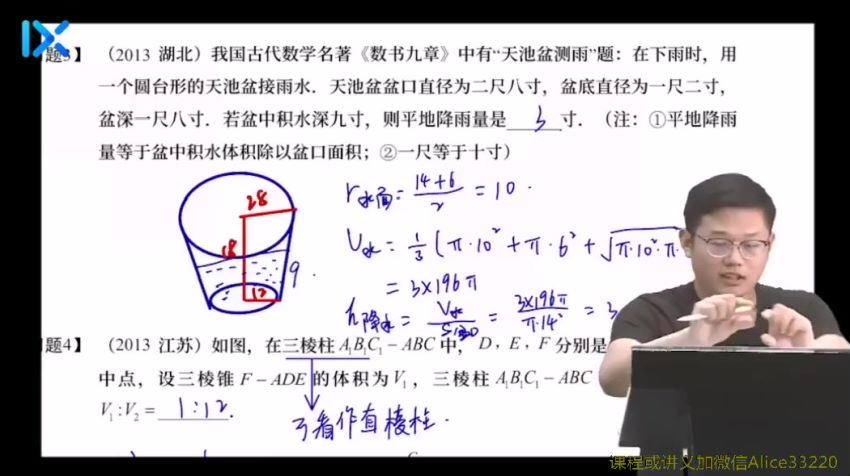 题3】 (2013 湖北) 我国古代数学名著《数书九章》中有“天池盆测雨”题：在下雨时，用
一个圆台形的天池盆接雨水．天池盆盆口直径为二尺八寸，盆底直径为一尺二寸，
盆深一尺八寸．若盆中积水深九寸，则平地降雨量是 3 寸．(注：①平地降雨
量等于盆中积水体积除以盆口面积；②一尺等于十寸)
28
18
9
12
r水面 = (14+6)/2 = 10 .
V水 = 1/3 (π·10² + π·6² + √π·10²·π·
= 3×196π
h降水 = V水/S = 3×196π/π·14² = 3
题4】 (2013 江苏) 如图，在三棱柱 A₁B₁C₁ − ABC 中，D，E，F 分别是
中点，设三棱锥 F − ADE 的体积为 V₁，三棱柱 A₁B₁C₁ − ABC
V₁:V₂ = 1:12 .
看作直棱柱．
课程或讲义加微信Alice33220